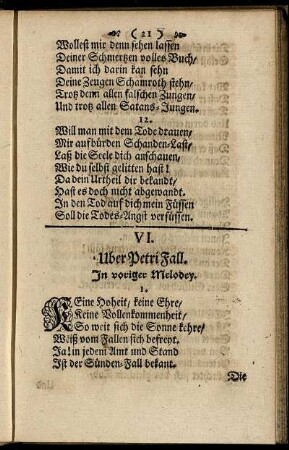 (21)
Wollest mir denn sehen lassen
Deiner Schmertzen volles Buch/
Damit ich darin kan sehn
Deine Zeugen Schamroth stehn/
Trotz denn allen falschen Zungen/
Und trotz allen Satans-Jungen.
12.
Will man mit dem Tode drauen/
Mir aufbürden Schanden-Last/
Laß die Seele dich anschauen/
Wie du selbst gelitten hast!
Da dein Urtheil dir bekandt/
Hast es doch nicht abgewandt.
In den Tod auf dich mein Füssen
Soll die Todes-Angst versüssen.
VI.
Uber Petri Fall.
In voriger Melodey.
1.
KEine Hoheit/ keine Ehre/
Keine Vollenkommenheit/
So weit sich die Sonne kehre/
Weiß vom Fallen sich befreyt.
Ja! in jedem Amt und Stand
Ist der Sünden-Fall bekant.
Die